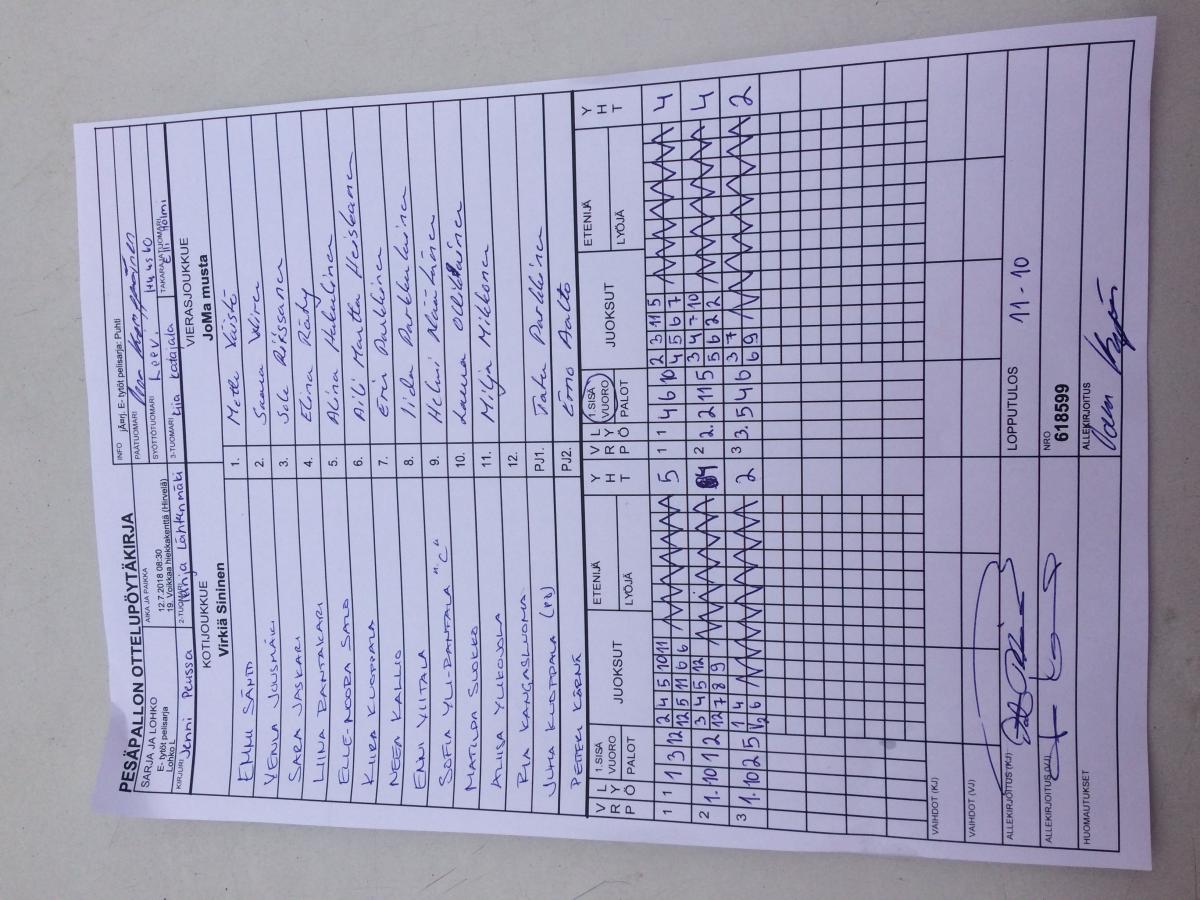 PESÄPALLON OTTELUPÖYTÄKIRJA
SARJA JA LOHKO
E- tytöt pelisarja
Lohko L
AIKA JA PAIKKA
12.7.2018 08:30
19. Voikkaa hiekkakenttä (Hirvelä)
INFO Järj. E- tytöt pelisarja: Puhti
PÄÄTUOMARI
SYÖTTÖTUOMARI
KIRJURI Jenni Peussa
2-TUOMARI
3-TUOMARI Liia Katajala
TAKARAJATUOMARI Elli Hölmi
KOTIJOUKKUE
Virkiä Sininen
VIERASJOUKKUE
JoMa musta
EMMI SÄNTI 1. Mette Väistö
VENLA JOUSMÄKI 2. Saana Wiren
SARA JASKARI 3. Sole Riissanen
LIINA RANTAKARI 4. Elina Räty
ELLE-NOORA SALO 5. Alina Hakulinen
KIIRA KUOPPALA 6. Aili Martta Heiskanen
NEEA KALLIO 7. Erin Parkkinen
ENNI YLITALO 8. Iida Parkkulainen
SOFIA YLI-RANTALA "C" 9. Helmi Määttänen
MATILDA SUOKKO 10. Laura Ollikainen
ALIISA YLIKOJOLA 11. Milja Mikkonen
RIA KANGASLUOMA 12.
JUHA KUOPPALA (PJ) PJ1. Juha Parkkinen
PETTERI KÄRNÄ PJ2. Eomo Aalto
V R Ö L Y P 1.SISÄ VUORO PALOT JUOKSUT ETENIJÄ LYÖJÄ Y H T
V R Ö L Y P 1.SISÄ VUORO PALOT JUOKSUT ETENIJÄ LYÖJÄ Y H T
1 1 1 3 12 2 4 5 10 11 5 1 1 4 6 10 2 3 11 5 4
12 5 11 6 6 4 5 6 7
2 1. 10 12 3 4 5 12 4 2 2. 2 11 5 3 4 7 10 4
12 7 8 9 5 6 2 2
3 1. 10 2 5 1 4 2 3 3. 5 4 6 3 7 2
12 6 6 9
VAIHDOT (KJ)
VAIHDOT (VJ)
ALLEKIRJOITUS (KJ)
LOPPUTULOS 11 - 10
ALLEKIRJOITUS (VJ)
NRO
618599
HUOMAUTUKSET
ALLEKIRJOITUS